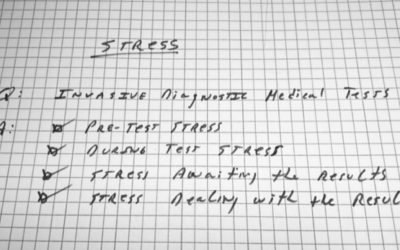 STRESS
Q: INVASIVE DIAGNOSTIC MEDICAL TESTS
PRE-TEST STRESS
DURING TEST STRESS
STRESS AWAITING the RESULTS
STRESS DEALING with the RESUL